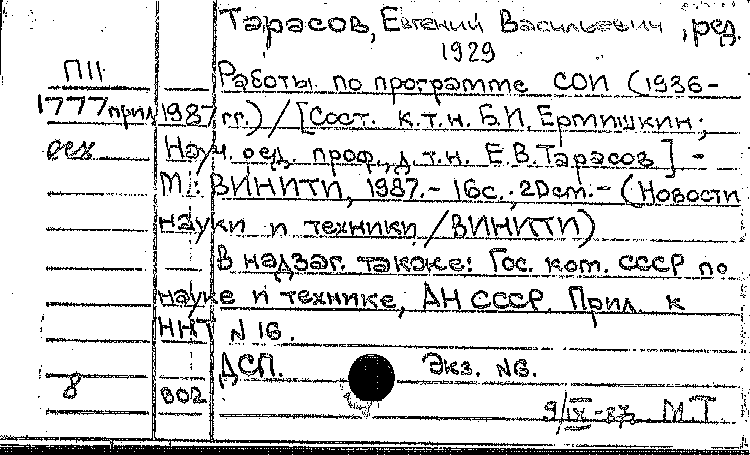 Тарасов, Евгений Васильевич, ред.
1929
П11 Работы по программе СОИ (1936-
1777прил 1987 гг.) / [Сост. к.т.н. Б.И. Ермишкин;
Науч. ред. проф., д.т.н. Е.В. Тарасов] -
М.: ВИНИТИ, 1987.- 16с.; 20 см.- (Новости
науки и техники / ВИНИТИ)
В надзаг. также: Гос. ком. СССР по
науке и технике, АН СССР. Прил. к
ННТ N 16.
ДСП. Экз. N6.
8 802
9/IX-87г. М.Т.